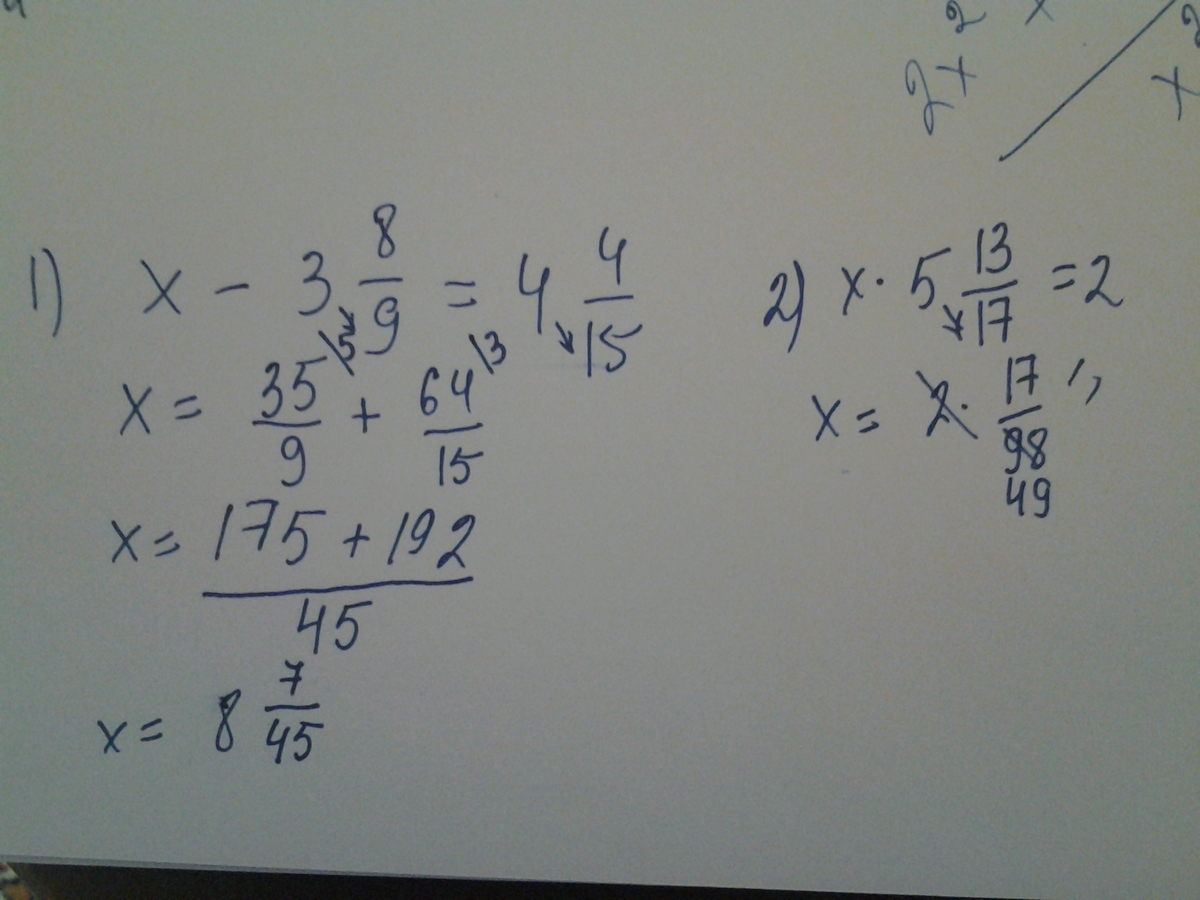 2x² x
x²
1) x - 3 8/9 = 4 4/15
x = 35/9 \5 + 64/15 \3
x = (175 + 192)/45
x = 8 7/45
2) x · 5 13/17 = 2
x = 2 · 17/98
49